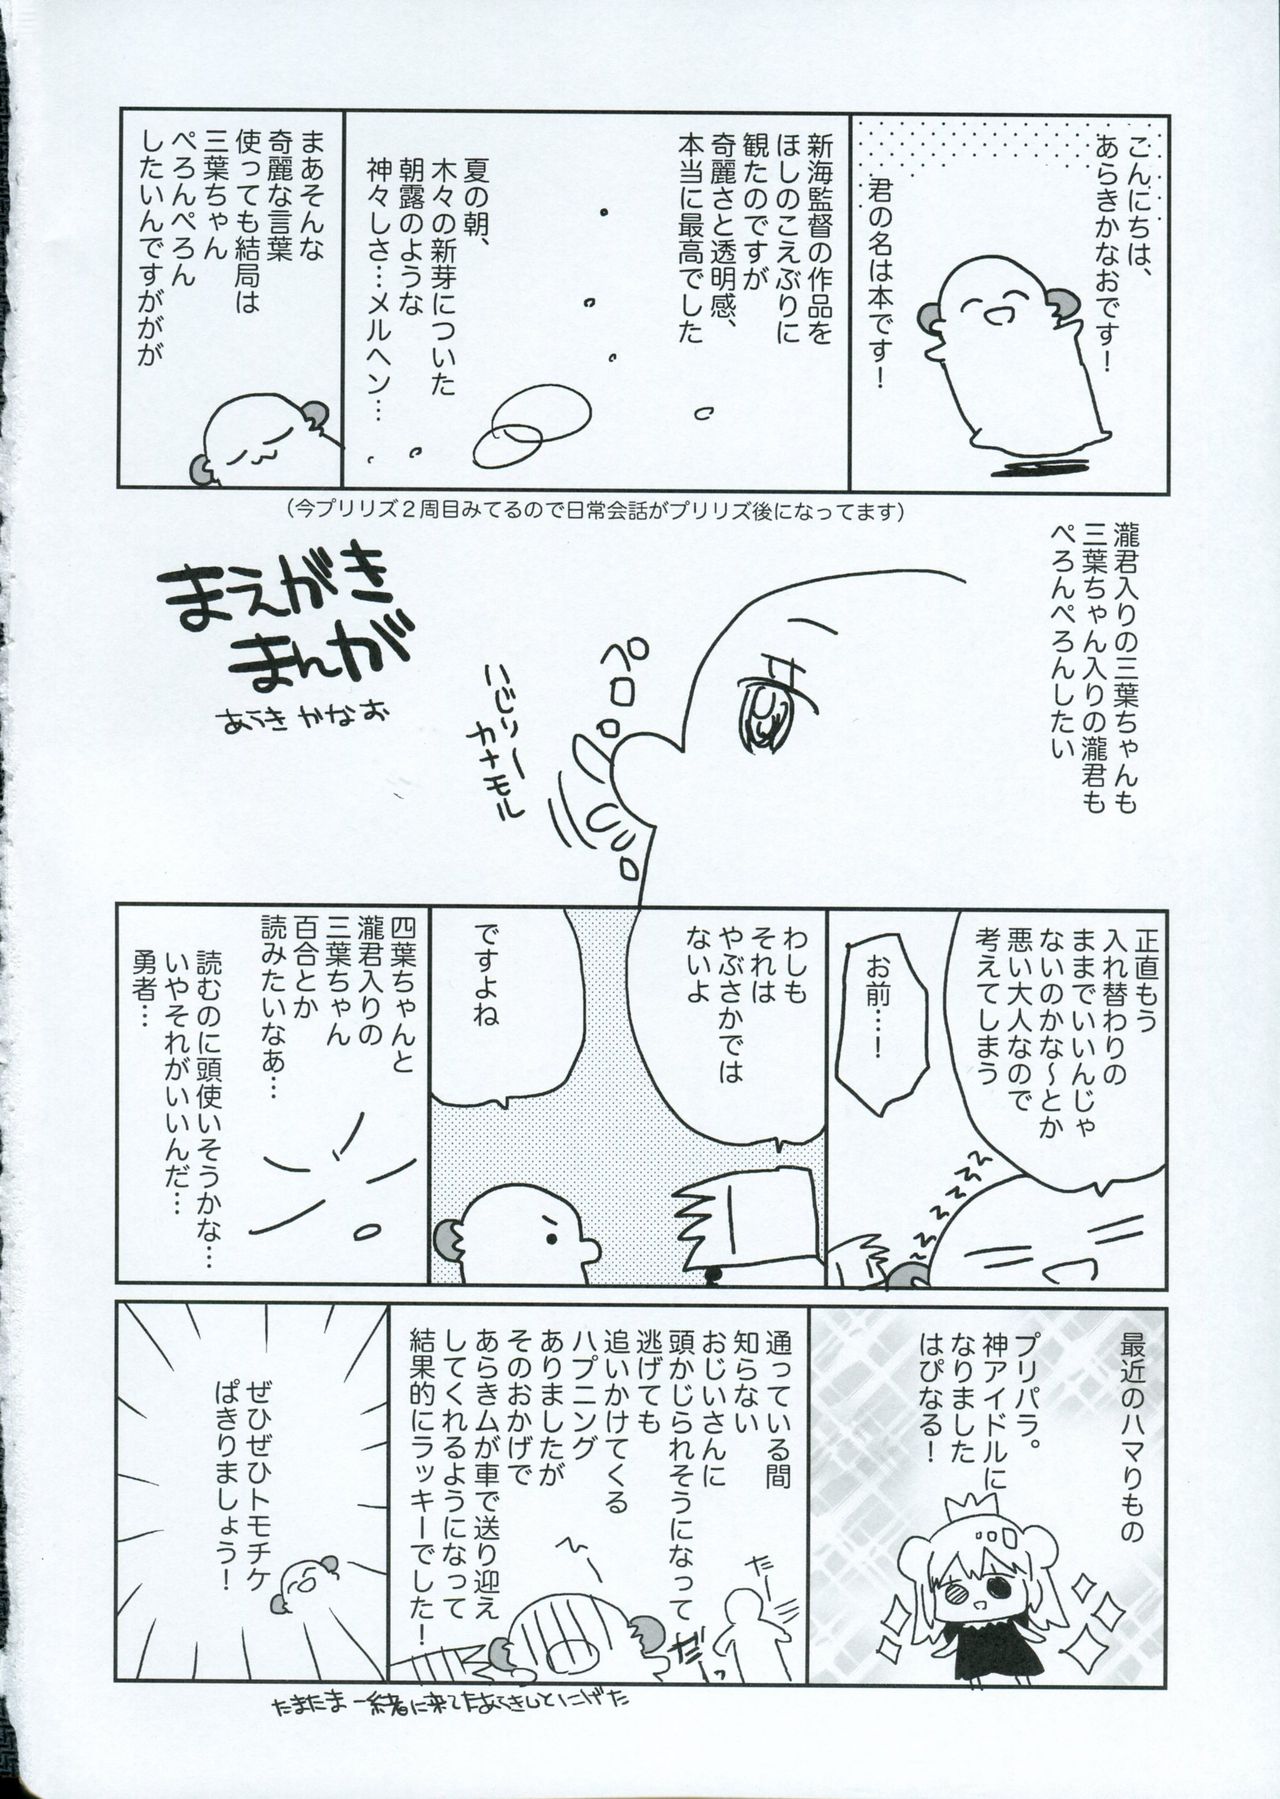 こんにちは、
あらきかなおです！
君の名は本です！
新海監督の作品を
ほしのこえぶりに
観たのですが
奇麗さと透明感、
本当に最高でした
夏の朝、
木々の新芽についた
朝露のような
神々しさ…メルヘン…
まあそんな
奇麗な言葉
使っても結局は
三葉ちゃん
ぺろんぺろん
したいんですががが
（今プリリズ２周目みてるので日常会話がプリリズ後になってます）
瀧君入りの三葉ちゃんも
三葉ちゃん入りの瀧君も
ぺろんぺろんしたい
ペロロ
ハじリー
カナモル
まえがき
まんが
あらき かなお
正直もう
入れ替わりの
ままでいいんじゃ
ないのかな～とか
悪い大人なので
考えてしまう
お前…！
わしも
それは
やぶさかでは
ないよ
ですよね
四葉ちゃんと
瀧君入りの
三葉ちゃん
百合とか
読みたいなあ…
読むのに頭使いそうかな…
いやそれがいいんだ…
勇者…
最近のハマりもの
プリパラ。
神アイドルに
なりました
はぴなる！
通っている間
知らない
おじいさんに
頭かじられそうになって
逃げても
追いかけてくる
ハプニング
ありましたが
そのおかげで
あらきムが車で送り迎え
してくれるようになって
結果的にラッキーでした！
だー
だっ
たまたま一緒に来てたあらきしとにげた
ぜひぜひトモチケ
ぱきりましょう！